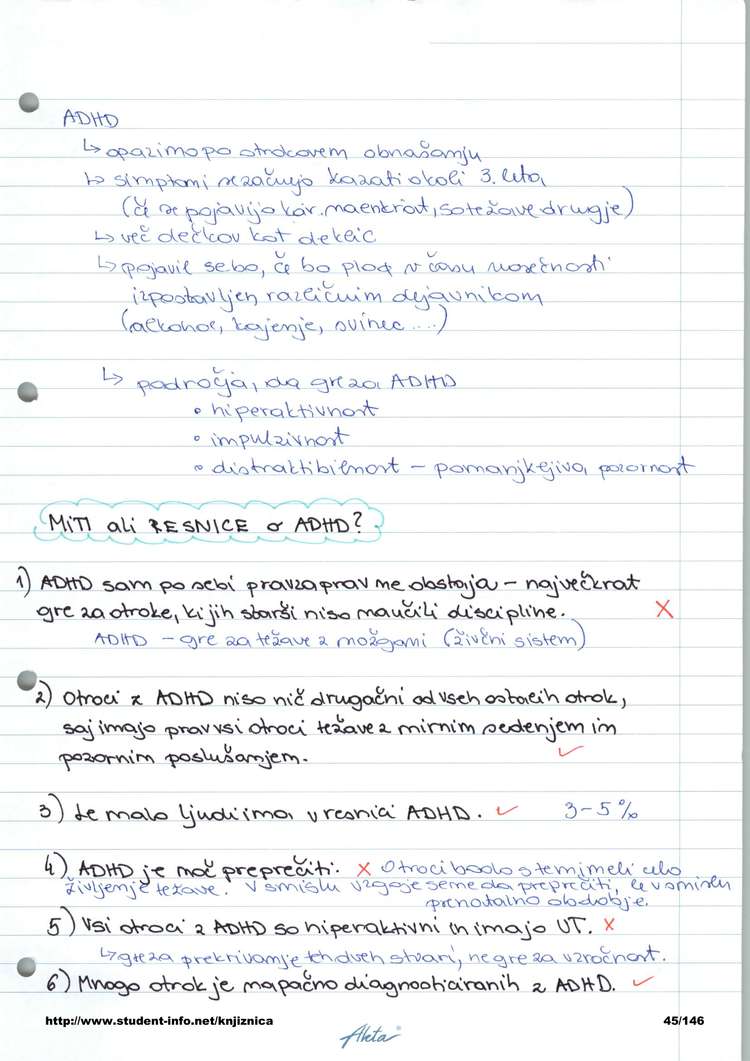 ADHD
↳ opazimo po otrokovem obnašanju
↳ simptomi se začnejo kazati okoli 3. leta
(če se pojavijo kar. naenkrat, so težave drugje)
↳ več dečkov kot deklic
↳ pojavil se bo, če bo plod v času nosečnosti
izpostavljen različnim dejavnikom
(alkohol, kajenje, svinec ....)
↳ področja, da gre za ADHD
• hiperaktivnost
• impulzivnost
• distraktibilnost – pomanjkljiva pozornost
MITI ali RESNICE o ADHD?
1) ADHD sam po sebi pravzaprav ne obstaja – največkrat
gre za otroke, ki jih starši niso naučili discipline. X
ADHD – gre za težave z možgani (živčni sistem)
2) Otroci z ADHD niso nič drugačni od vseh ostalih otrok,
saj imajo prav vsi otroci težave z mirnim sedenjem in
pozornim poslušanjem. ✓
3) Le malo ljudi ima v resnici ADHD. ✓ 3-5%
4) ADHD je moč preprečiti. X Otroci bodo s tem imeli celo
življenje težave. V smislu vzgoje se ne da preprečiti, le v smislu
prenatalno obdobje.
5) Vsi otroci z ADHD so hiperaktivni in imajo UT. X
↳ gre za prekrivanje teh dveh stvari, ne gre za vzročnost.
6) Mnogo otrok je napačno diagnosticiranih z ADHD. ✓
http://www.student-info.net/knjiznica 45/146
Akta®